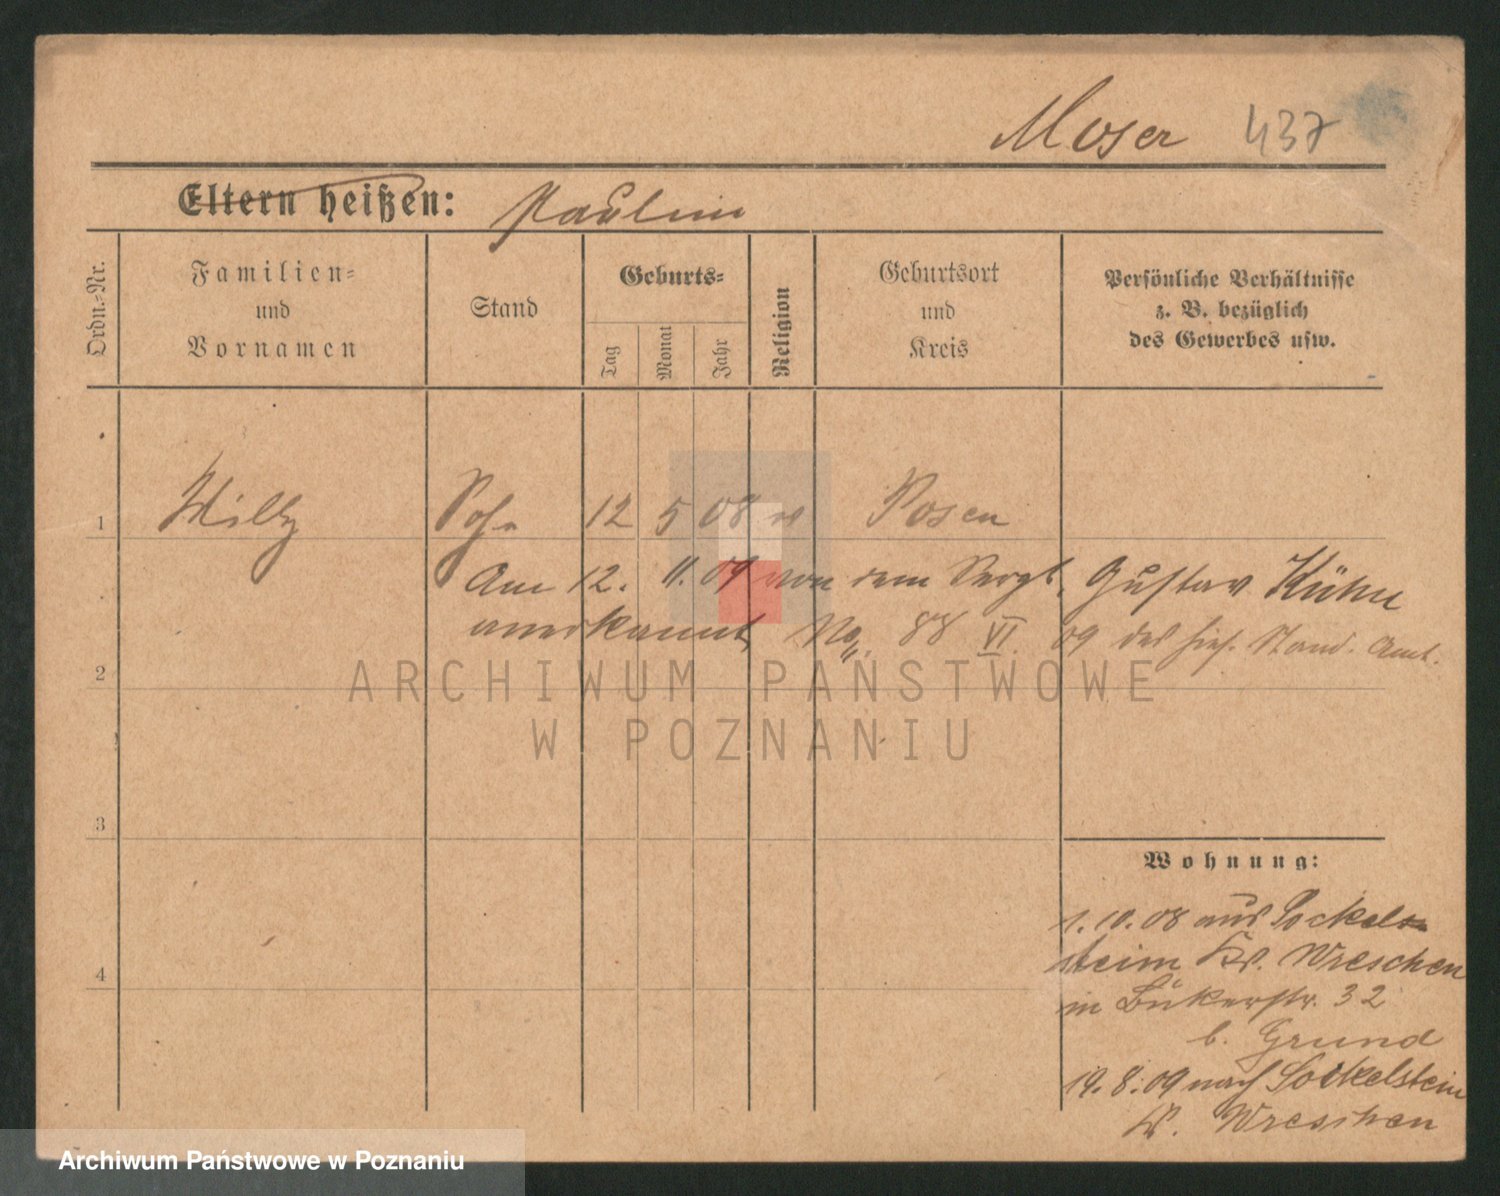 Moser 437
Eltern heißen: Paulina
Ordn.-Nr.
Familien-
und
Vornamen
Stand
Geburts-
Tag
Monat
Jahr
Religion
Geburtsort
und
Kreis
Persönliche Verhältnisse
z. B. bezüglich
des Gewerbes usw.
1 Willy Sohn 12 5 08 Posen
Am 12. 11. 09 von dem Sergt. Gustav Kühn
anerkannt No. 88 VI. 09 des hies. Stand. Amt.
2
ARCHIWUM PAŃSTWOWE
W POZNANIU
3
Wohnung:
4
1. 10. 08 aus Sockel-
steim Kr. Wreschen
in Bukerstr. 32
b. Grund
19. 8. 09 nach Sockelstein
Kr. Wreschen
Archiwum Państwowe w Poznaniu